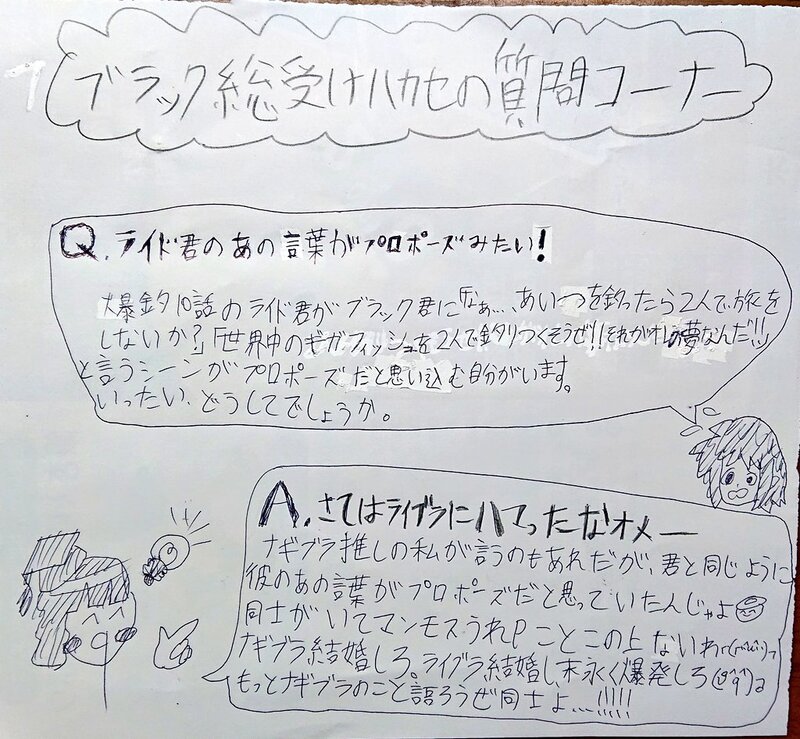 ブラック総受けハカセの質問コーナー
Q.ライド君のあの言葉がプロポーズみたい!
爆釣10話のライド君がブラック君に「なぁ…、あいつを釣ったら2人で旅を
しないか?」「世界中のギガフィッシュを2人で釣りつくそうぜ!!それがオレの夢なんだ!!」
と言うシーンがプロポーズだと思い込む自分がいます。
いったい、どうしてでしょうか。
A.さてはライブラにハマったなオメー
ナギブラ推しの私が言うのもあれだが、君と同じように
彼のあの言葉がプロポーズだと思っていたんじゃよ
同士がいてマンモスうれPことこの上ないわ
ナギブラ結婚しろ。ライブラ結婚し、末永く爆発しろ
もっとナギブラのこと語ろうぜ同士よ…!!!!!